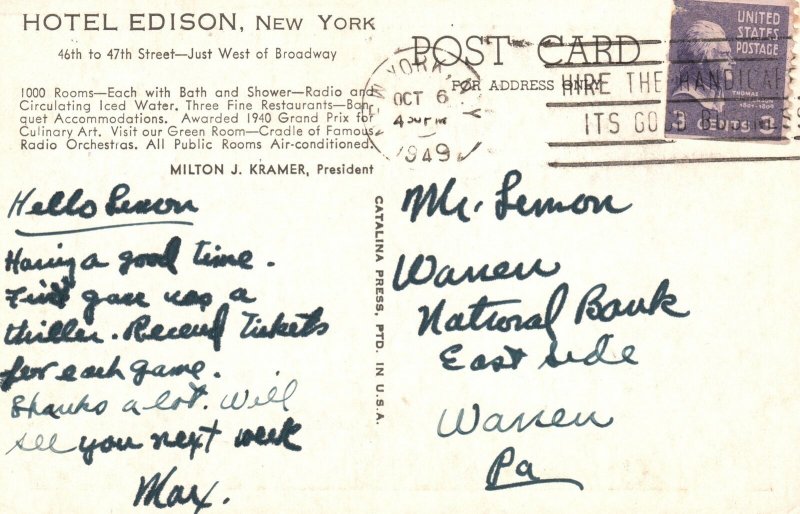 HOTEL EDISON, NEW YORK
46th to 47th Street—Just West of Broadway
1000 Rooms—Each with Bath and Shower—Radio and
Circulating Iced Water. Three Fine Restaurants—Ban-
quet Accommodations. Awarded 1940 Grand Prix for
Culinary Art. Visit our Green Room—Cradle of Famous
Radio Orchestras. All Public Rooms Air-conditioned.
MILTON J. KRAMER, President
Hello Lemon
Having a good time.
First game was a
thriller. Received tickets
for each game.
Thanks a lot. Will
see you next week
Max.
CATALINA PRESS, PTD. IN U.S.A.
POST CARD
FOR ADDRESS ONLY
YORK, N.Y.
OCT 6
4 PM
1949
HIRE THE HANDICAP
ITS GOOD BUSINESS
UNITED
STATES
POSTAGE
THOMAS
JEFFERSON
1801-1809
3 CENTS 3
Mr. Lemon
Warren
National Bank
East side
Warren
Pa